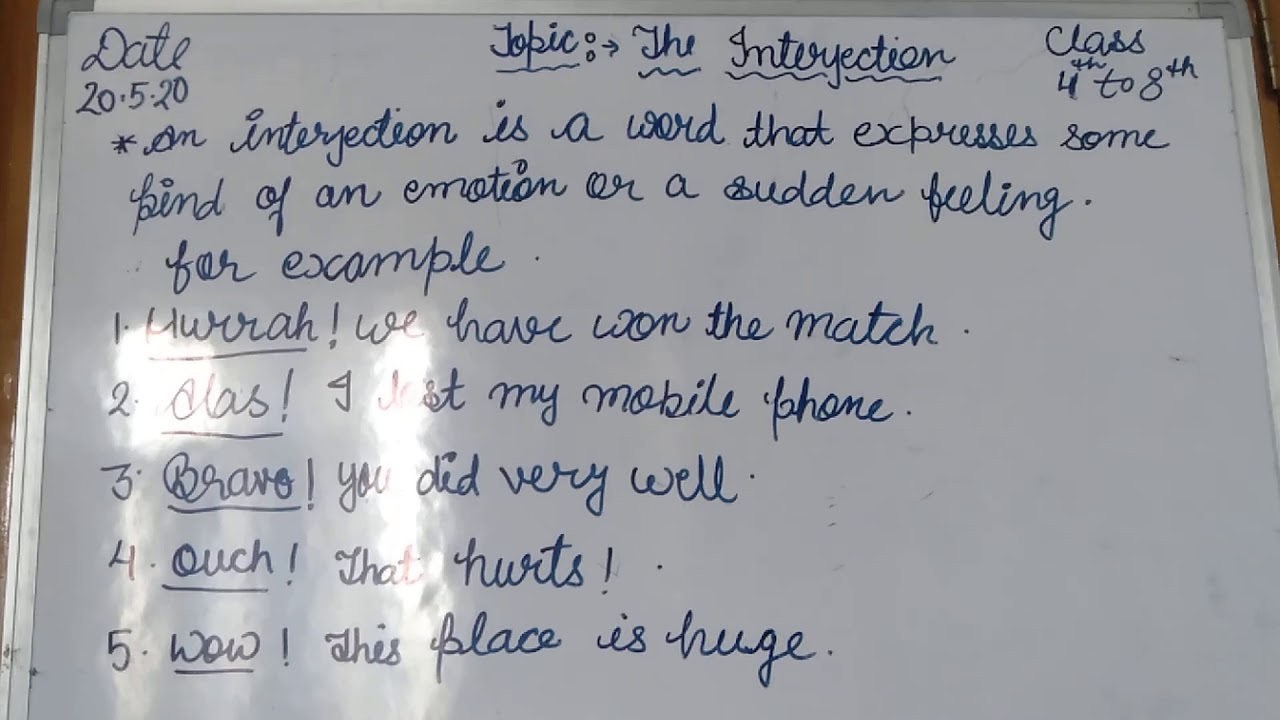 Date Topic:→ The Interjection Class
20.5.20 4th to 8th
* An interjection is a word that expresses some
kind of an emotion or a sudden feeling.
for example
1. Hurrah! we have won the match.
2. Alas! I lost my mobile phone.
3. Bravo! you did very well.
4. Ouch! That hurts!
5. Wow! This place is huge.